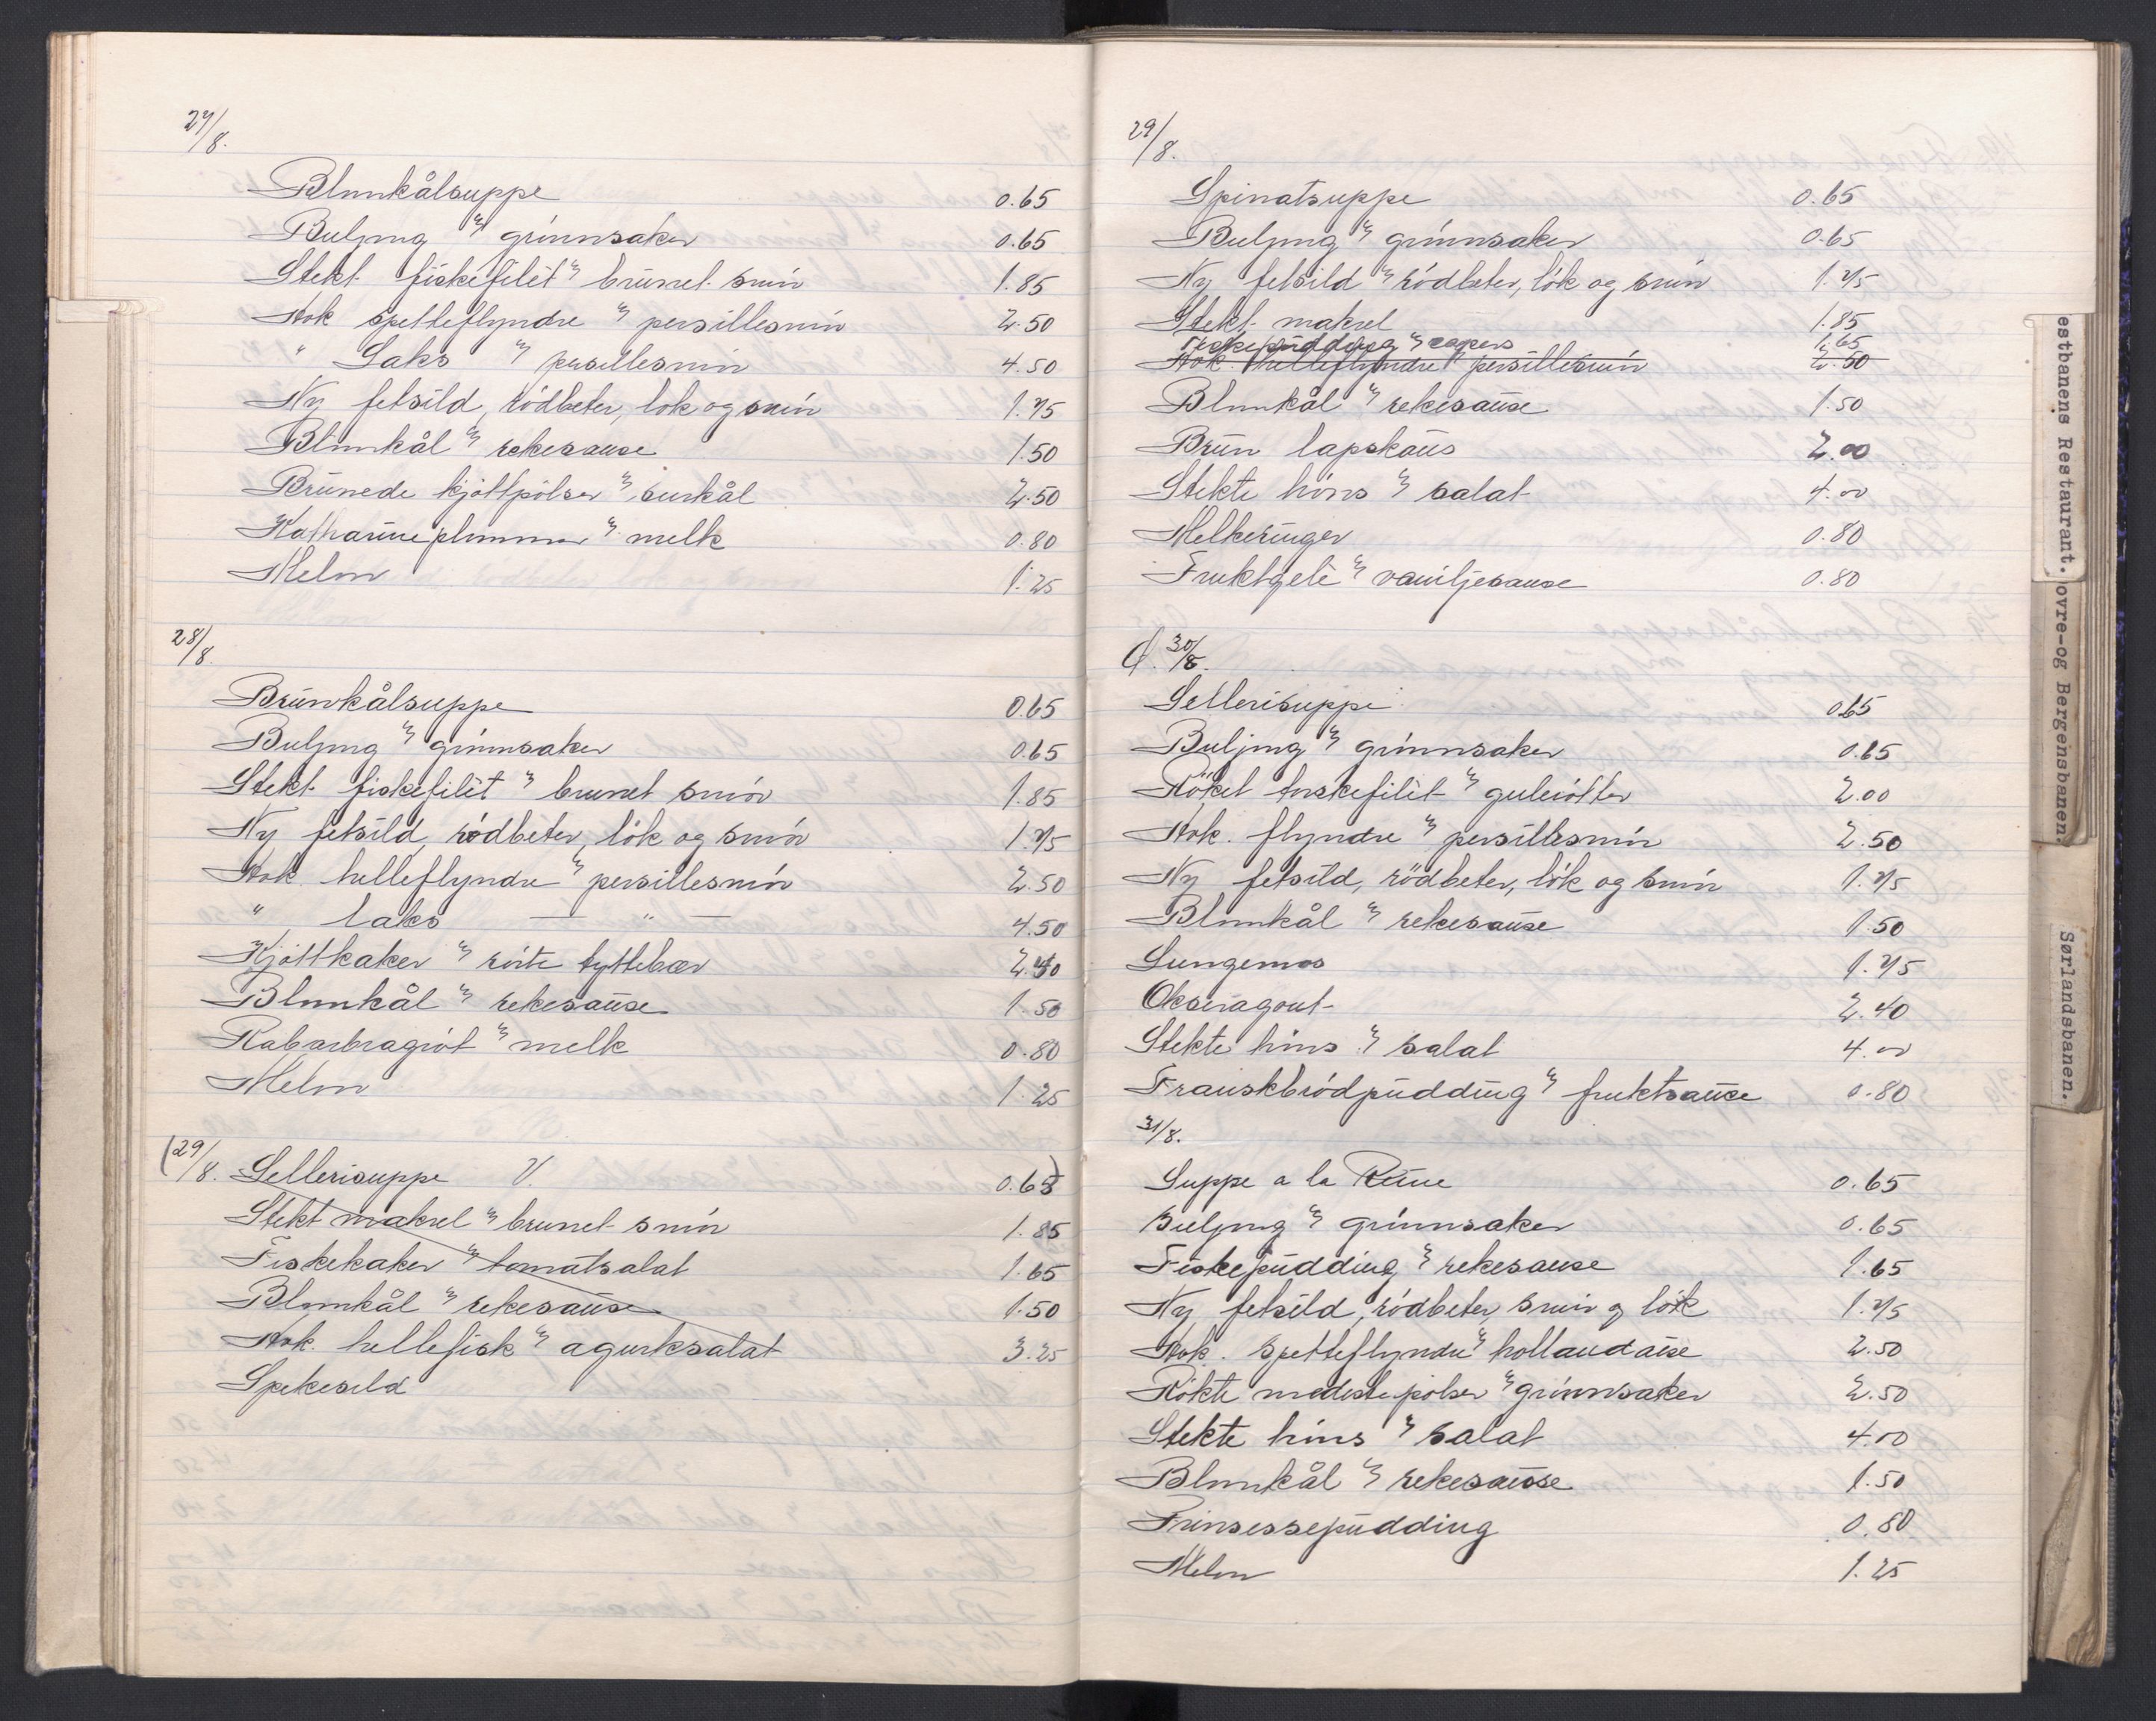 27/8.
Blomkålsuppe 0.65
Buljong m grönnsaker 0.65
Stekt fiskefilèt m brunet smör 1.85
Kok spetteflyndre m persillesmör 2.50
" Laks m persillesmör 4.50
Ny fetsild, rödbeter, lök og smör 1.75
Blomkål m rekesause 1.50
Brunede kjöttpölser m surkål 2.50
Katharineplommer m melk 0.80
Melon 1.25
28/8.
Brunkålsuppe 0.65
Buljong m grönnsaker 0.65
Stekt fiskefilèt m brunet smör 1.85
Ny fetsild, rödbeter, lök og smör 1.75
Kok helleflyndre m persillesmör 2.50
" laks — " — 4.50
Kjöttkaker m rörte tyttebær 2.40
Blomkål m rekesause 1.50
Rabarbragröt m melk 0.80
Melon 1.25
(29/8. Sellerisuppe V. 0.65)
Stekt makrel m brunet smör 1.85
Fiskekaker m tomatsalat 1.65
Blomkål m rekesause 1.50
Kok. hellefisk m agurksalat 3.25
Spekesild
29/8.
Spinatsuppe 0.65
Buljong m grönnsaker 0.65
Ny fetsild m rödbeter, lök og smör 1.75
Stekt makrel 1.85
Fiskepudding m capers 1.65
Kok. helleflyndre m persillesmör 2.50
Blomkål m rekesause 1.50
Brun lapskaus 2.00
Stekte höns m salat 4.00
Melkeringer 0.80
Fruktgelè m vaniljesause 0.80
d. 30/8.
Sellerisuppe 0.65
Buljong m grönnsaker 0.65
Röket torskefilèt m gulerötter 2.00
Kok. flyndre m persillesmör 2.50
Ny fetsild, rödbeter, lök og smör 1.75
Blomkål m rekesause 1.50
Lungemos 1.75
Okseragout 2.40
Stekte höns m salat 4.00
Franskbrödpudding m fruktsause 0.80
31/8.
Suppe a la Reine 0.65
Buljong m grönnsaker 0.65
Fiskepudding m rekesause 1.65
Ny fetsild, rödbeter, smör og lök 1.75
Kok. Spetteflyndre m hollandaise 2.50
Rökte medisterpölser m grönnsaker 2.50
Stekte höns m salat 4.00
Blomkål m rekesause 1.50
Prinsessepudding 0.80
Melon 1.25
estbanens Restaurant.
ovre-og Bergensbanen.
Sørlandsbanen.